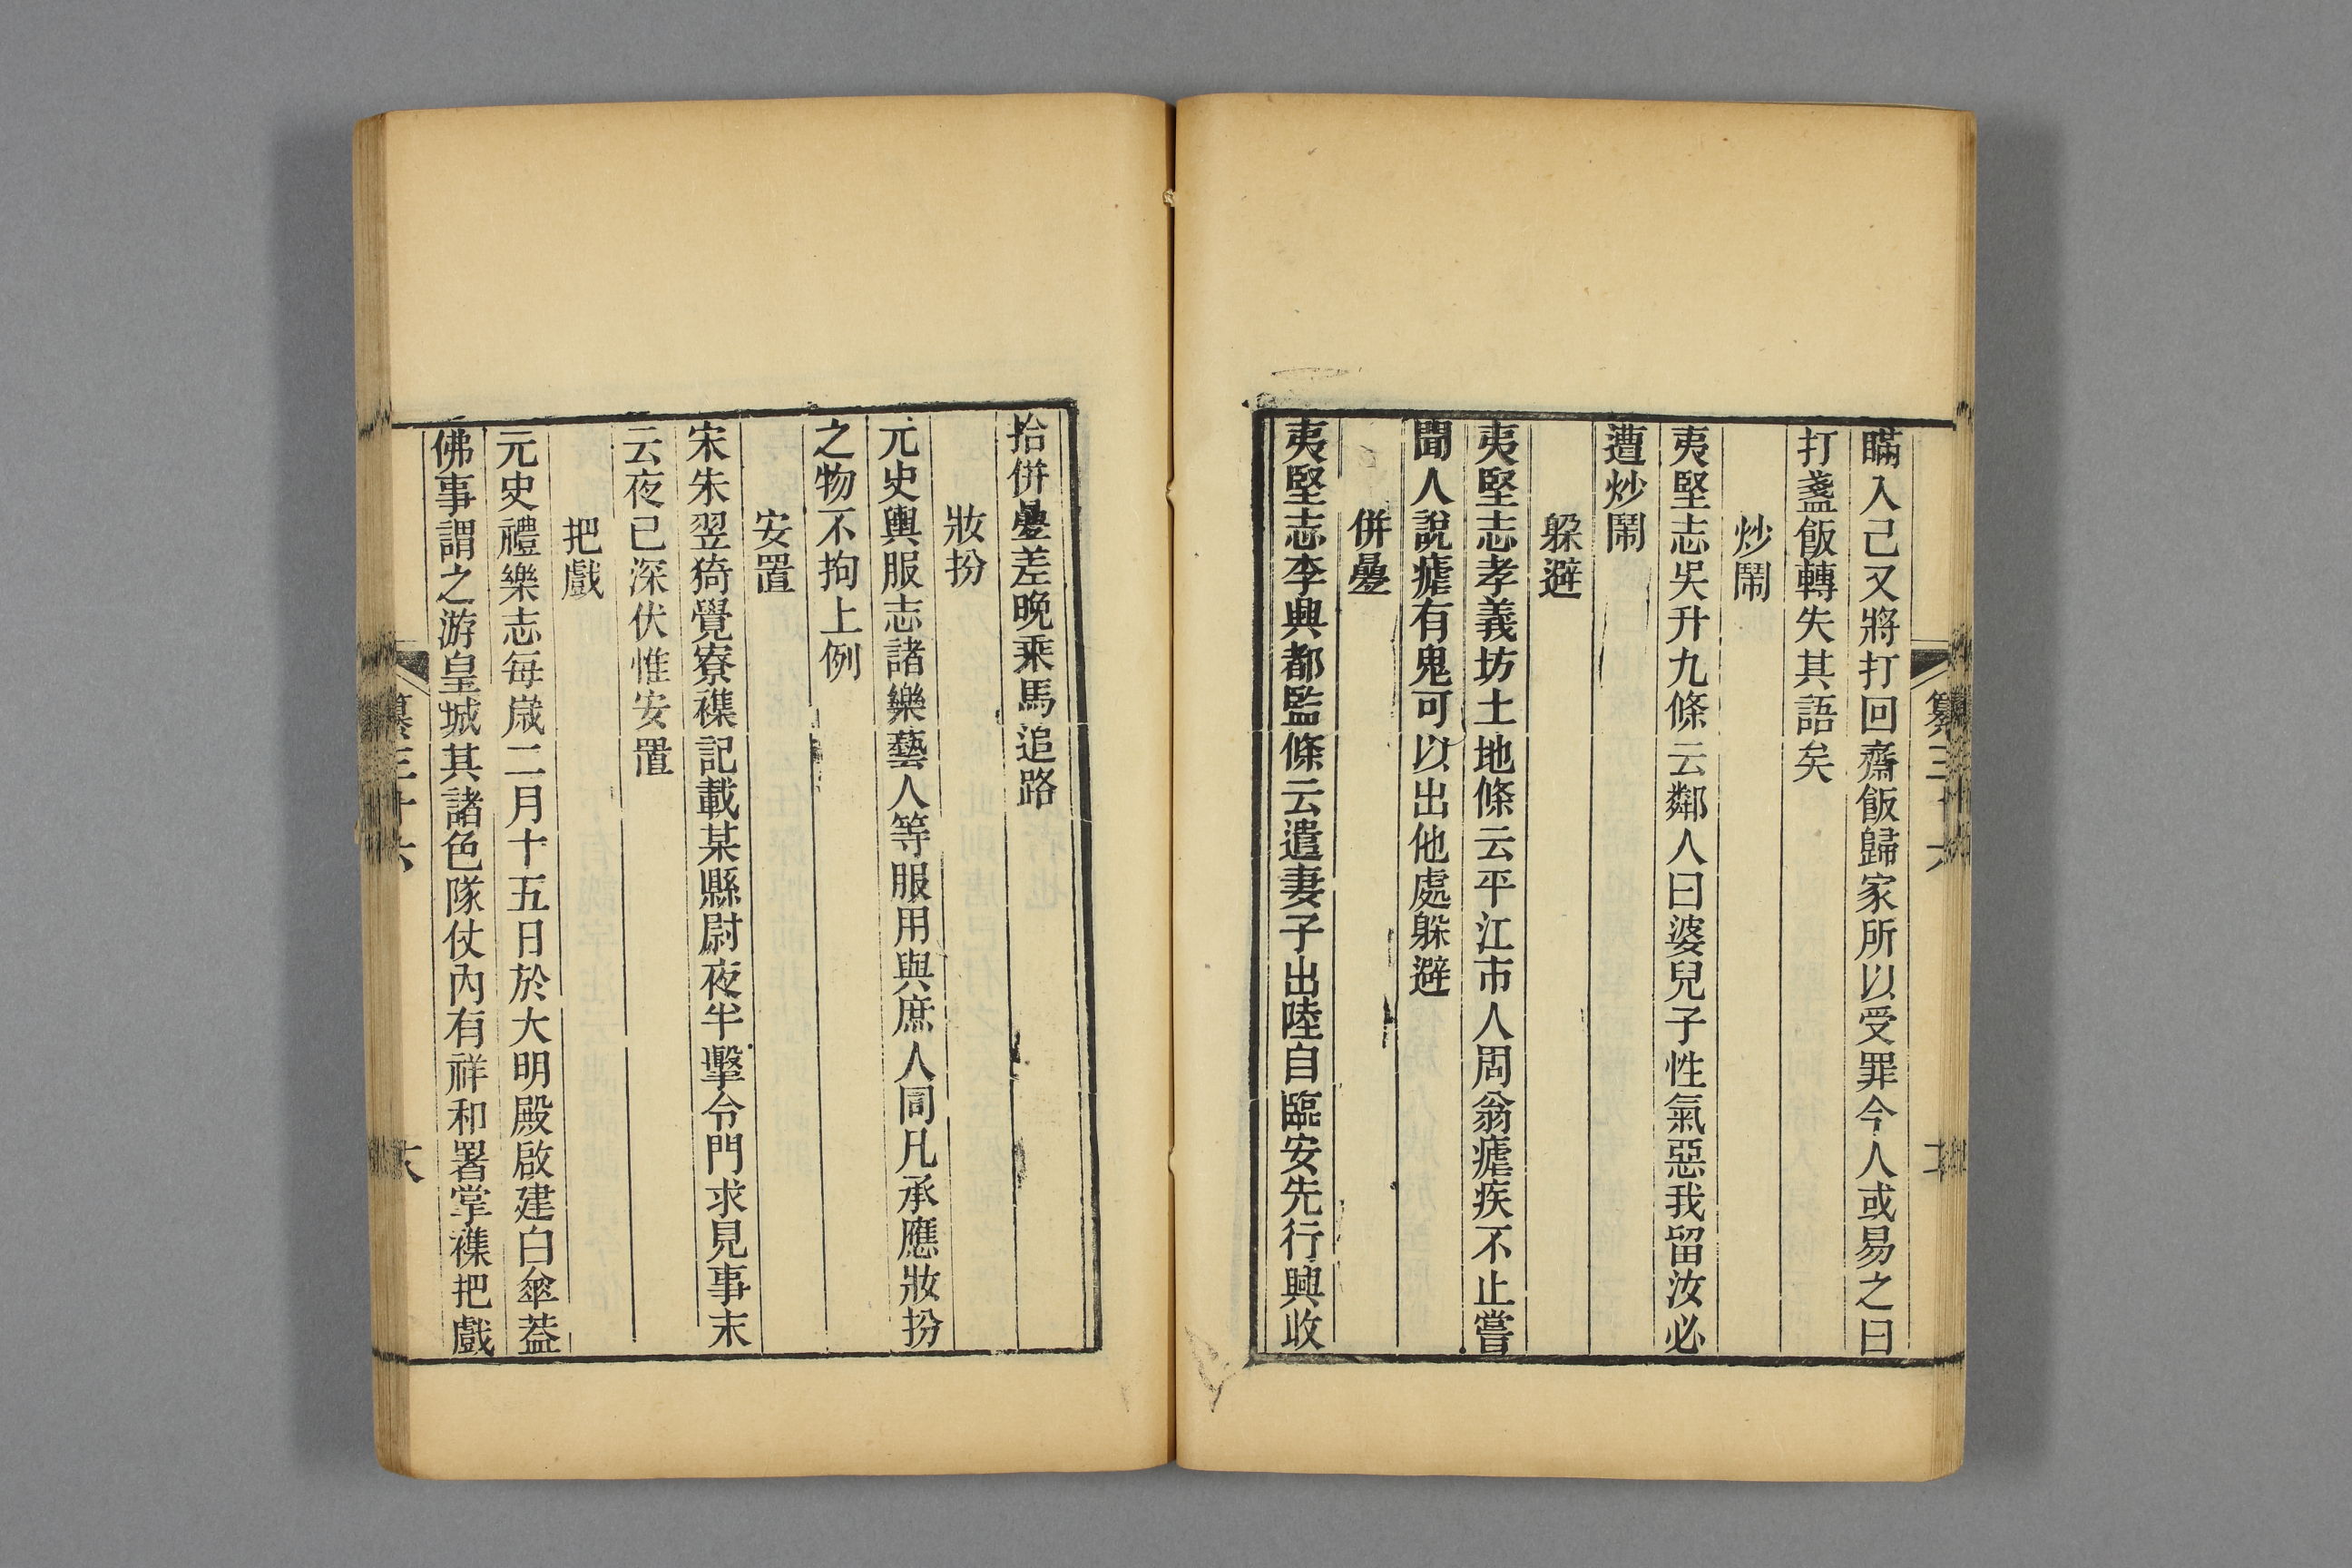 瞞入己又將打回齋飯歸家所以受罪今人或易之曰
打盞飯轉失其語矣
炒鬧
夷堅志吳升九條云鄰人曰婆兒子性氣惡我留汝必
遭炒鬧
躲避
夷堅志孝義坊土地條云平江市人周翁瘧疾不止嘗
聞人說瘧有鬼可以出他處躲避
併疊
夷堅志李興都監條云遣妻子出陸自臨安先行興收
拾併疊差晚乘馬追路
妝扮
元史輿服志諸樂藝人等服用與庶人同凡承應妝扮
之物不拘上例
安置
宋朱翌猗覺寮襍記載某縣尉夜半擊令門求見事末
云夜已深伏惟安置
把戲
元史禮樂志每歲二月十五日於大明殿啟建白傘葢
佛事謂之游皇城其諸色隊仗內有祥和署掌襍把戲